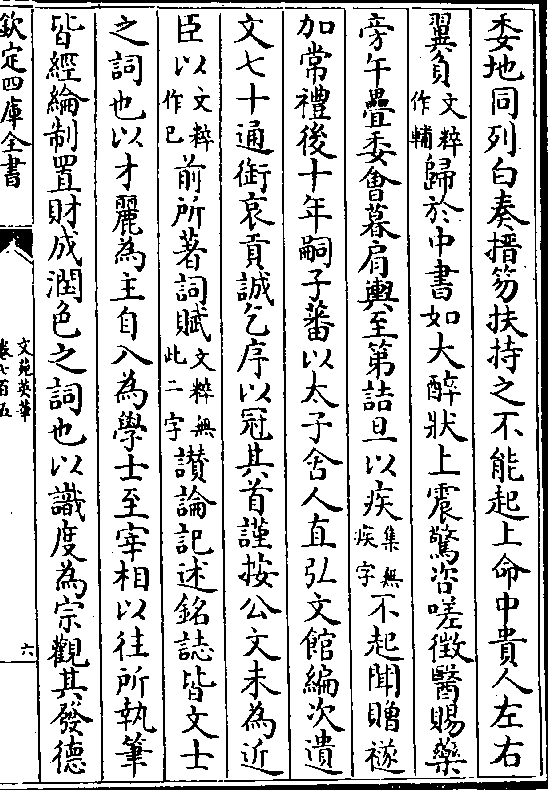 委地同列白奏搢笏扶持之不能起上命中貴人左右
翼負文粹作輔歸於中書如大醉狀上震驚咨嗟徵醫賜藥
旁午疊委會暮肩輿至第詰旦以疾集無疾字不起聞贈襚
加常禮後十年嗣子蕃以太子舍人直弘文館編次遺
文七十通銜哀貢誠乞序以冠其首謹按公文未為近
臣以文粹作已前所著詞賦文粹無此二字讃論記述銘誌皆文士
之詞也以才麗為主自入為學士至宰相以往所執筆
皆經綸制置財成潤色之詞也以識度為宗觀其發德
欽定四庫全書
文苑英華
卷七百五
六